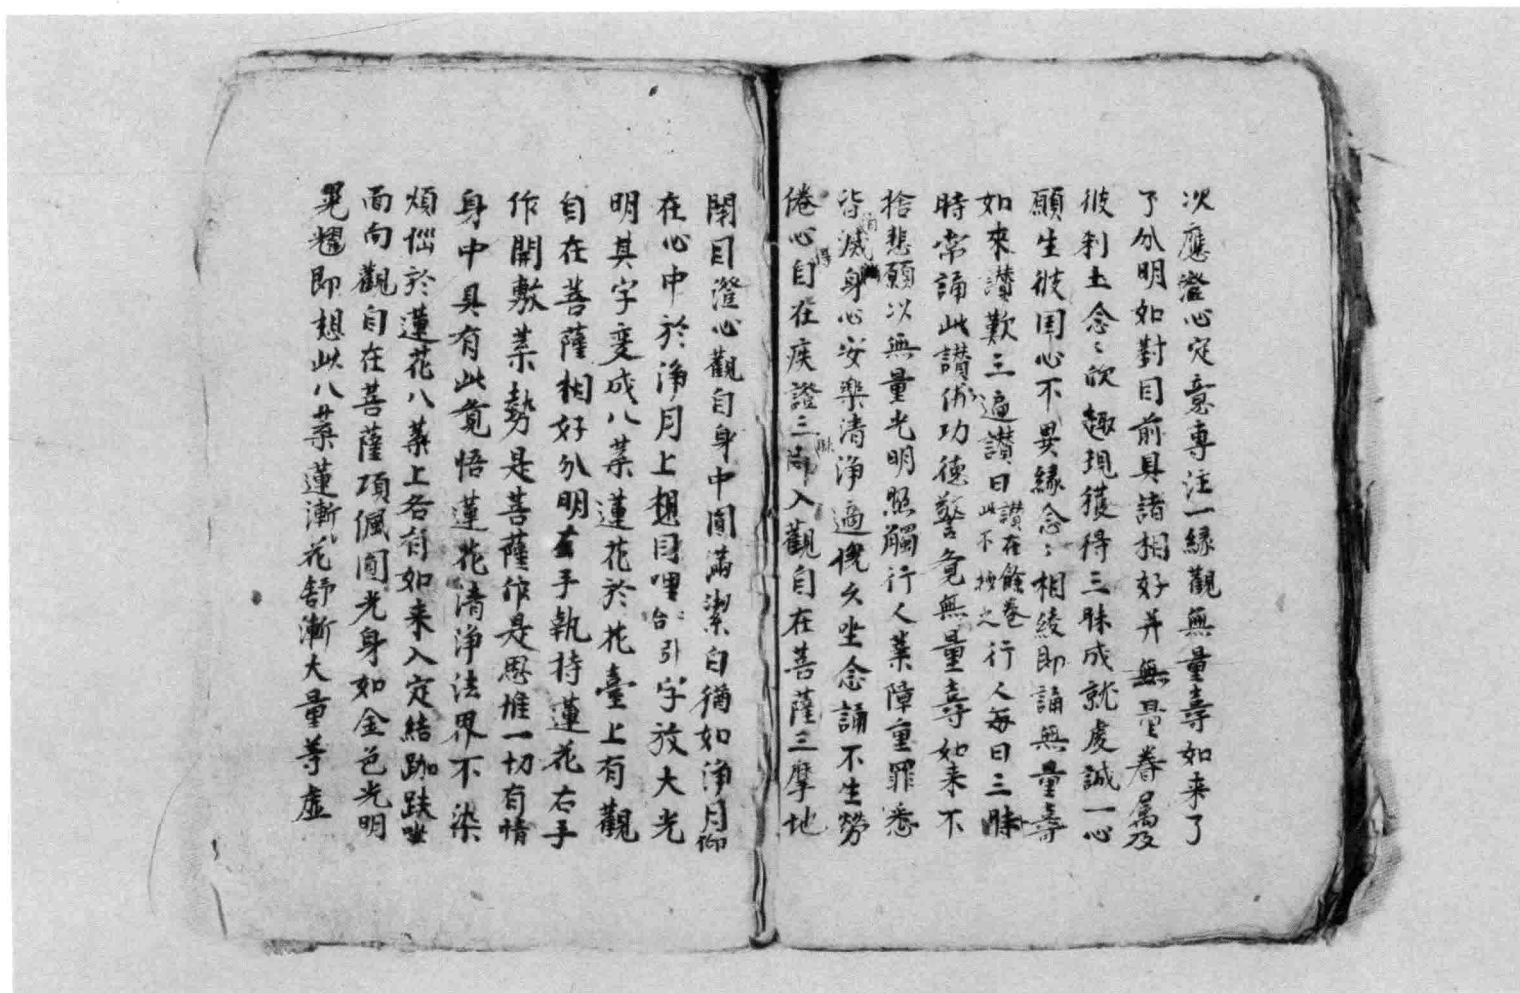 次應澄心定意專注一緣觀無量壽如来了
了分明如對目前具諸相好并無量眷屬及
彼刹土念〻欣趣現獲得三昧成就虔誠一心
願生彼国心不異緣念〻相綾即誦無量壽
如來讃歎三遍讃曰讃在餘卷此不抄之行人每日三昧
時常誦此讃佛功德警覔無量壽如来不
捨悲願以無量光明照觸行人業障重罪悉
皆消滅身心安樂清淨適恱久坐念誦不生勞
倦心得自在疾證三昧入觀自在菩薩三摩地
閉目澄心觀自身中圓滿潔白猶如淨月仰
在心中於淨月上想目哩台引字放大光
明其字变成八葉蓮花於花臺上有觀
自在菩薩相好分明左手執持蓮花右手
作開敷葉勢是菩薩作是思惟一切有情
身中具有此覔悟蓮花清淨法界不染
煩惱於蓮花八葉上各有如来入定結跏趺坐
面向觀自在菩薩項佩圓光身如金色光明
晃耀即想此八葉蓮漸〻花舒漸大量等虛